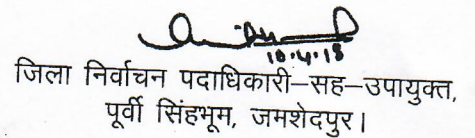 10.4.18
जिला निर्वाचन पदाधिकारी–सह–उपायुक्त,
पूर्वी सिंहभूम, जमशेदपुर।